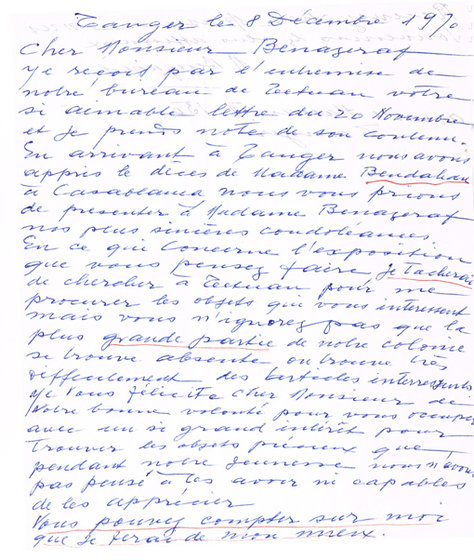 Tanger le 8 Décembre 1970
Cher Monsieur Benazeraf
Je reçois par l'entremise de
notre bureau de Tetuan votre
si aimable lettre du 20 Novembre
et je prends note de son contenu.
En arrivant à Tanger nous avons
appris le dèces de Madame Bendahan
à Casablanca nous vous prions
de presenter à Madame Benazeraf
nos plus sincères condoleances
En ce qui concerne l'exposition
que vous pensez faire je tacherai
de chercher à Tetuan pour me
procurer les objets qui vous interessent
mais vous n'ignorez pas que la
plus grande partie de notre colonie
se trouve absente on trouve très
difficulement des articles interressants
Je vous félicite cher Monsieur de
Votre bonne volonté pour vous occuper
avec un si grand intérêt pour
trouver les objets précieux que
pendant notre jeunesse nous n'avons
pas pensé à les avoir ni capables
de les apprécier
Vous pouvez compter sur moi
que je ferai de mon mieux.